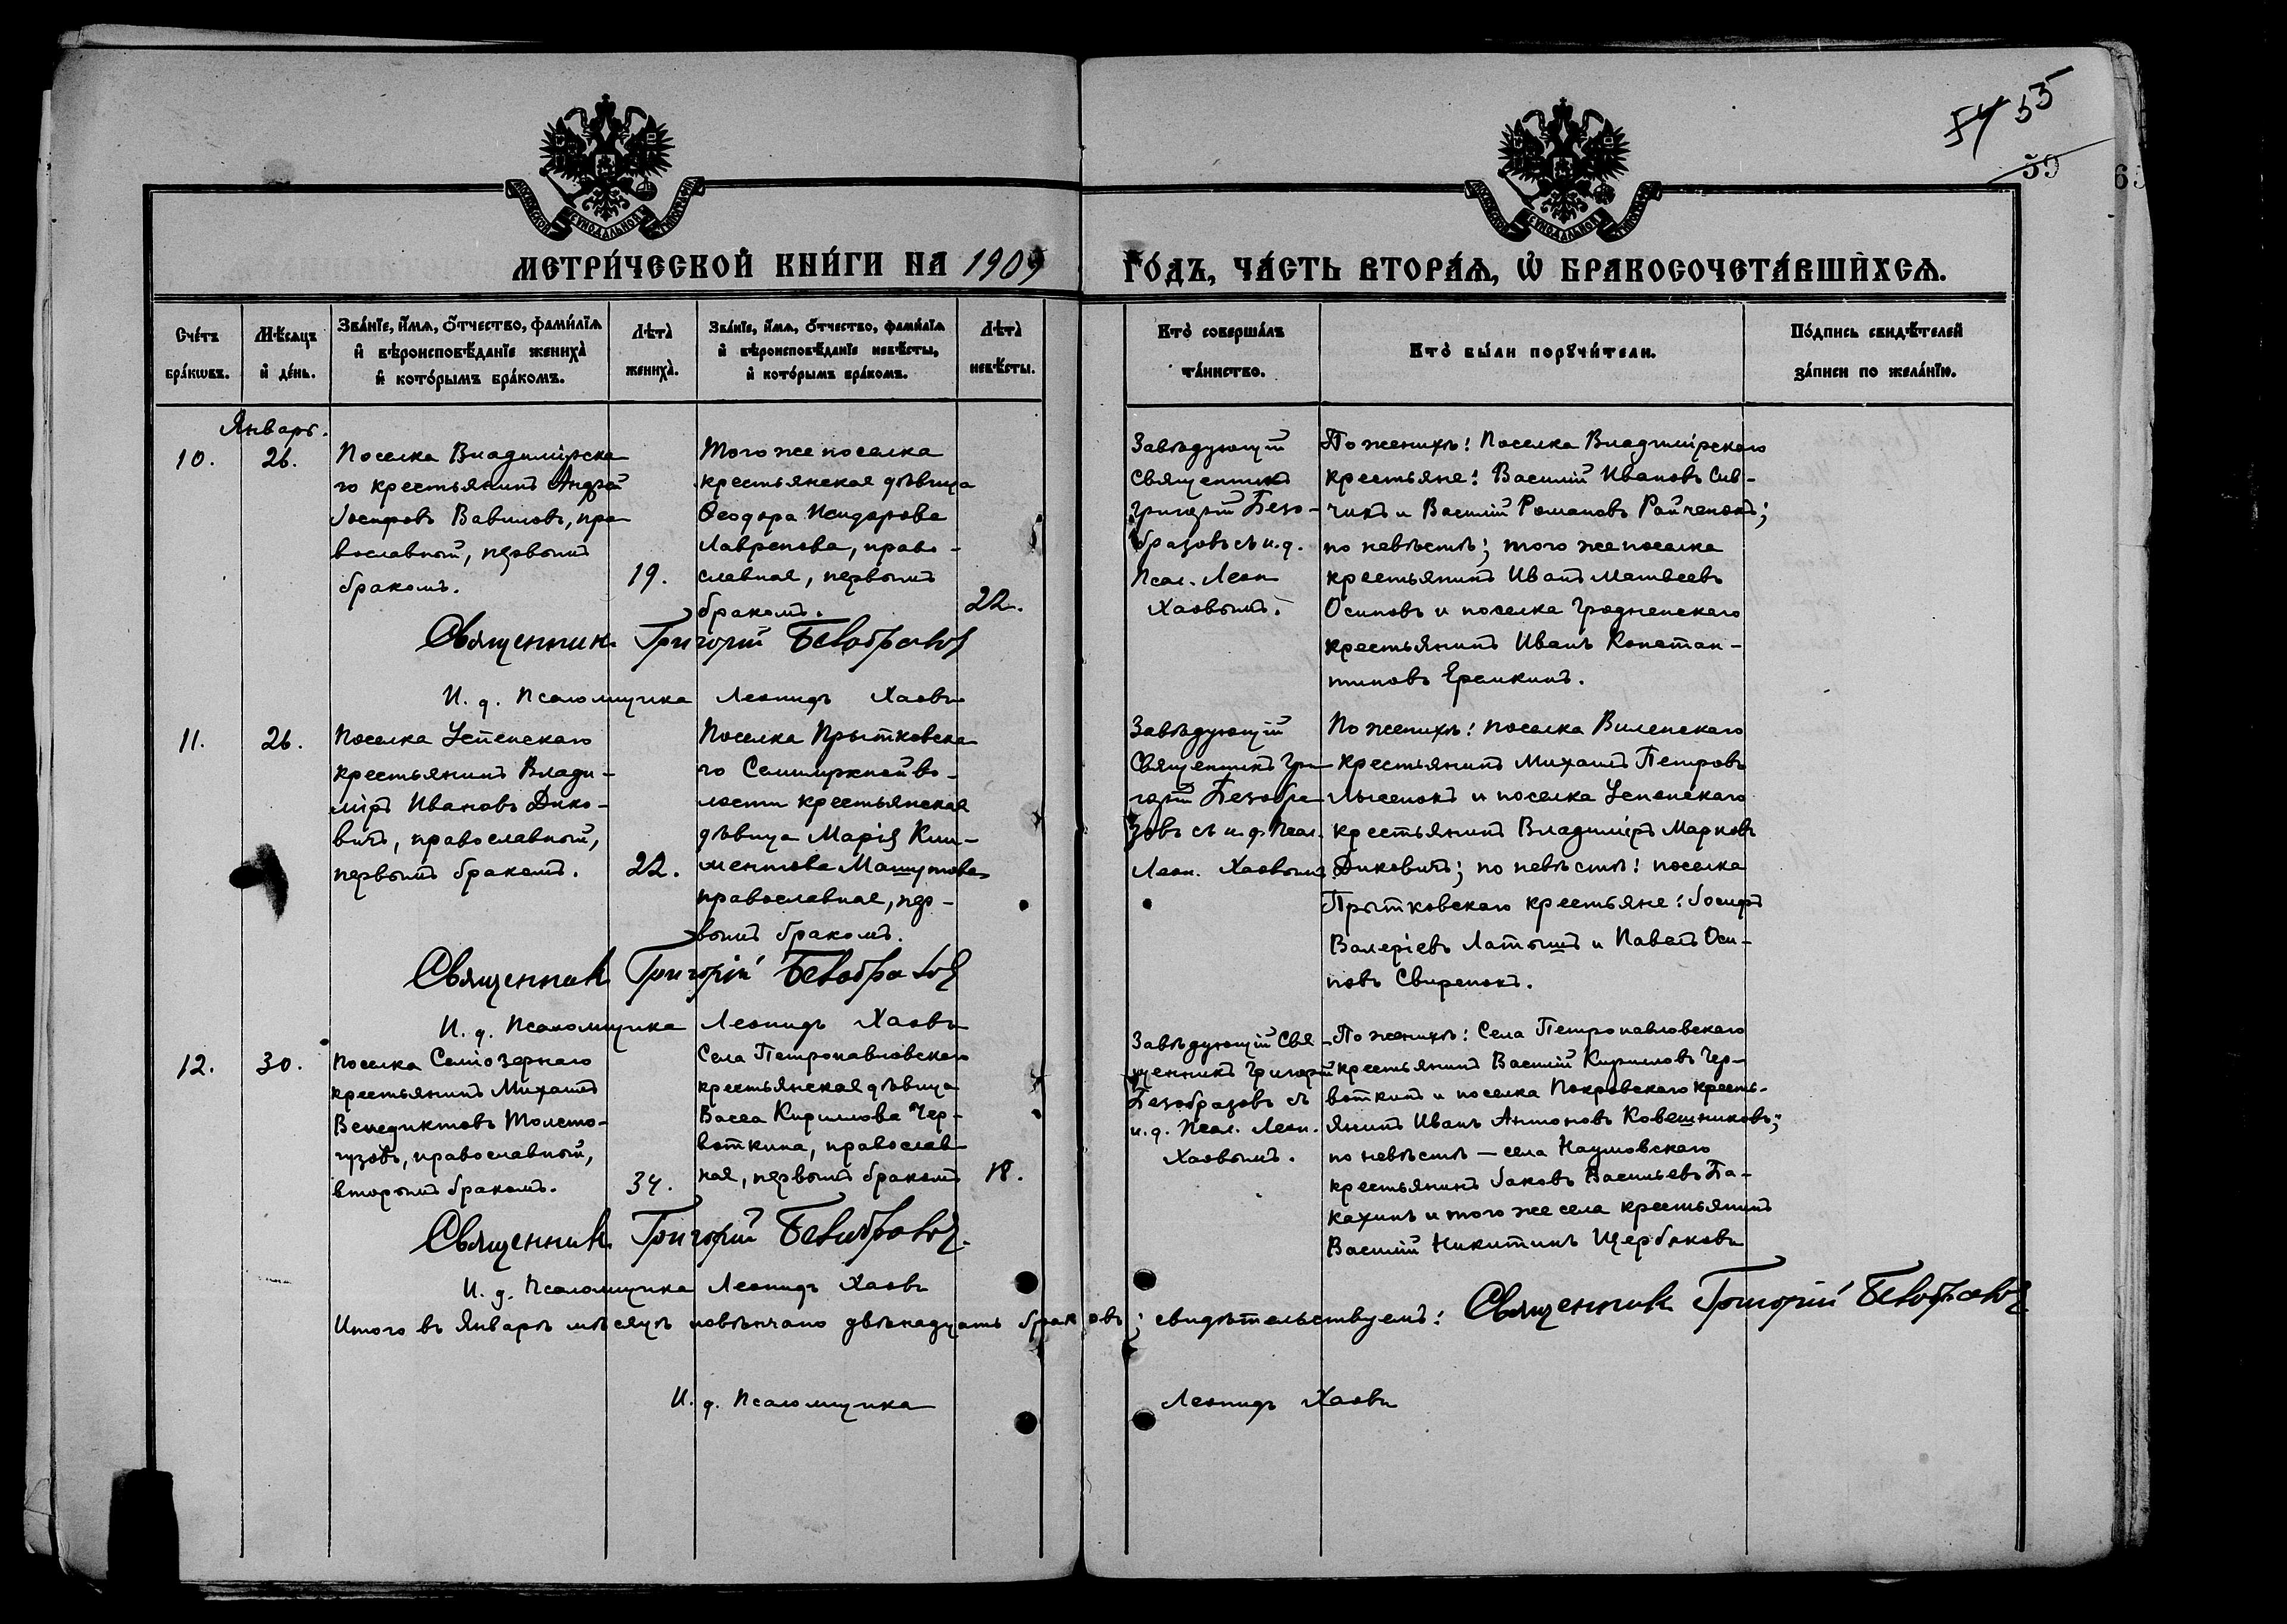 54 55
59
65
МЕТРИ́ЧЕСКОЙ КНИ́ГИ НА 1909
ГО́ДЪ, ЧА́СТЬ ВТОРА́Я, Ѡ БРАКОСОЧЕТА́ВШИХСЯ.
Сче́тъ бра́кωвъ.
Мѣ́сяцъ и де́нь.
Зва́нїе, и́мя, о́тчество, фами́лїя
и вѣроисповѣ́данїе жениха̀
и кото́рымъ бра́комъ.
Лѣта̀ жениха̀.
Зва́нїе, и́мя, о́тчество, фами́лїя
и вѣроисповѣ́данїе невѣ́сты,
и кото́рымъ бра́комъ.
Лѣта̀ невѣ́сты.
Кто̀ соверша́лъ
та́инство.
Кто̀ бы́ли порꙋчи́тели.
По́дпись свидѣ́телей
за́писи по жела́нїю.
Январь.
10.
26.
Поселка Владимірска-
го крестьянинъ Андрей
Іосифовъ Вавиловъ, пра-
вославный, первымъ
бракомъ.
19.
Того же поселка
крестьянская дѣвица
Ѳеодора Исидорова
Лавренова, право-
славная, первымъ
бракомъ.
22.
Завѣдующій
Священникъ
Григорій Безо-
бразовъ съ и. д.
Псал. Леон.
Хаовымъ.
По женихѣ: Поселка Владимірскаго
крестьяне: Василій Ивановъ Сив-
чикъ и Василій Романовъ Райченокъ;
по невѣстѣ; того же поселка
крестьянинъ Иванъ Матвеевъ
Осиповъ и поселка Гродненскаго
крестьянинъ Иванъ Констан-
тиновъ Еремкинъ.
Священникъ Григорій Безобразовъ
И. д. Псаломщика Леонидъ Хаовъ
11.
26.
Поселка Успенскаго
крестьянинъ Влади-
міръ Ивановъ Дико-
вичъ, православный,
первымъ бракомъ.
22.
Поселка Прытковска-
го Семиозерной во-
лости крестьянская
дѣвица Марія Кли-
ментова Машутова
православная, пер-
вымъ бракомъ.
Завѣдующій
Священникъ Гри-
горій Безобра-
зовъ съ и. д. Псал.
Леон. Хаовымъ
По женихѣ: поселка Виленскаго
крестьянинъ Михаилъ Петровъ
Лысенокъ и поселка Успенскаго
крестьянинъ Владиміръ Марковъ
Диковичъ; по невѣстѣ: поселка
Прытковскаго крестьяне: Іосифъ
Валеріевъ Латышъ и Павелъ Оси-
повъ Свиренокъ.
Священникъ Григорій Безобразовъ
И. д. Псаломщика Леонидъ Хаовъ
12.
30.
поселка Семіозернаго
крестьянинъ Михаилъ
Венедиктовъ Толсто-
гузовъ, православный,
вторымъ бракомъ.
34.
Села Петропавловскаго
крестьянская дѣвица
Васса Кириллова Чер-
воткина, православ-
ная, первымъ бракомъ
18.
Завѣдующій Свя-
щенникъ Григорій
Безобразовъ съ
и. д. Псал. Леон.
Хаовымъ.
По женихѣ: Села Петропавловскаго
крестьянинъ Василій Кирилловъ Чер-
воткинъ и поселка Покровскаго кресть-
янинъ Иванъ Антоновъ Ковешниковъ;
по невѣстѣ — села Наумовскаго
крестьянинъ Іаковъ Васильевъ Ба-
кахинъ и того же села крестьянинъ
Василій Никитинъ Щербаковъ
Священникъ Григорій Безобразовъ.
И. д. Псаломщика Леонидъ Хаовъ
Итого въ Январѣ мѣсяцѣ повѣнчано двѣнадцать браковъ; свидѣтельствуемъ: Священникъ Григорій Безобразовъ
И. д. Псаломщика Леонидъ Хаовъ